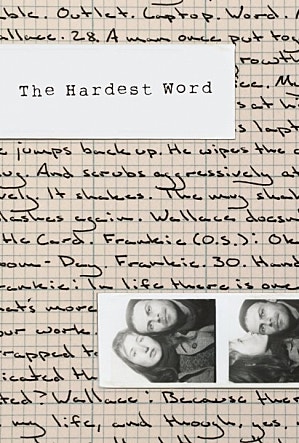 ble. Outlet. Laptop. Word.
allace. 28. A man once put to
rowth
The Hardest Word
s at h
s lapt
e jumps back up. He wipes the
ug. And scrubs aggressively at
vely. It shakes. The mug shal
lashes again. Wallace doesn
tle Card. Frankie (O.S.): Ok
oom - Day. Frankie. 30. Hand
ankie: In life there is one
hat's more
our work.
rapped t
icated th
ted? Wallace: Because ther
my life, and though, yes.